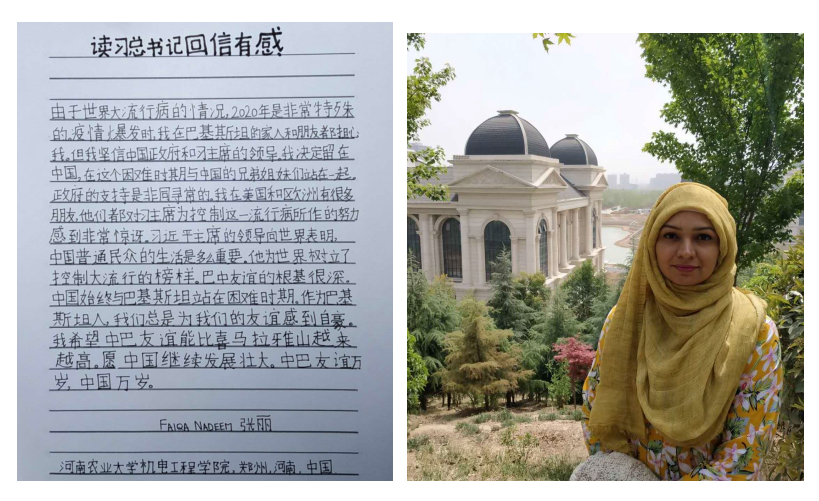 读习总书记回信有感
由于世界大流行病的情况,2020年是非常特殊
的。疫情爆发时,我在巴基斯坦的家人和朋友都担心
我。但我坚信中国政府和习主席的领导,我决定留在
中国,在这个困难时期与中国的兄弟姐妹们站在一起。
政府的支持是非同寻常的。我在美国和欧洲有很多
朋友,他们都对习主席为控制这一流行病所作的努力
感到非常惊讶。习近平主席的领导向世界表明,
中国普通民众的生活是多么重要。他为世界树立了
控制大流行的榜样。巴中友谊的根基很深。
中国始终与巴基斯坦站在困难时期。作为巴基
斯坦人,我们总是为我们的友谊感到自豪。
我希望中巴友谊能比喜马拉雅山越来
越高。愿中国继续发展壮大。中巴友谊万
岁,中国万岁。
FAIQA NADEEM 张丽
河南农业大学机电工程学院,郑州,河南,中国